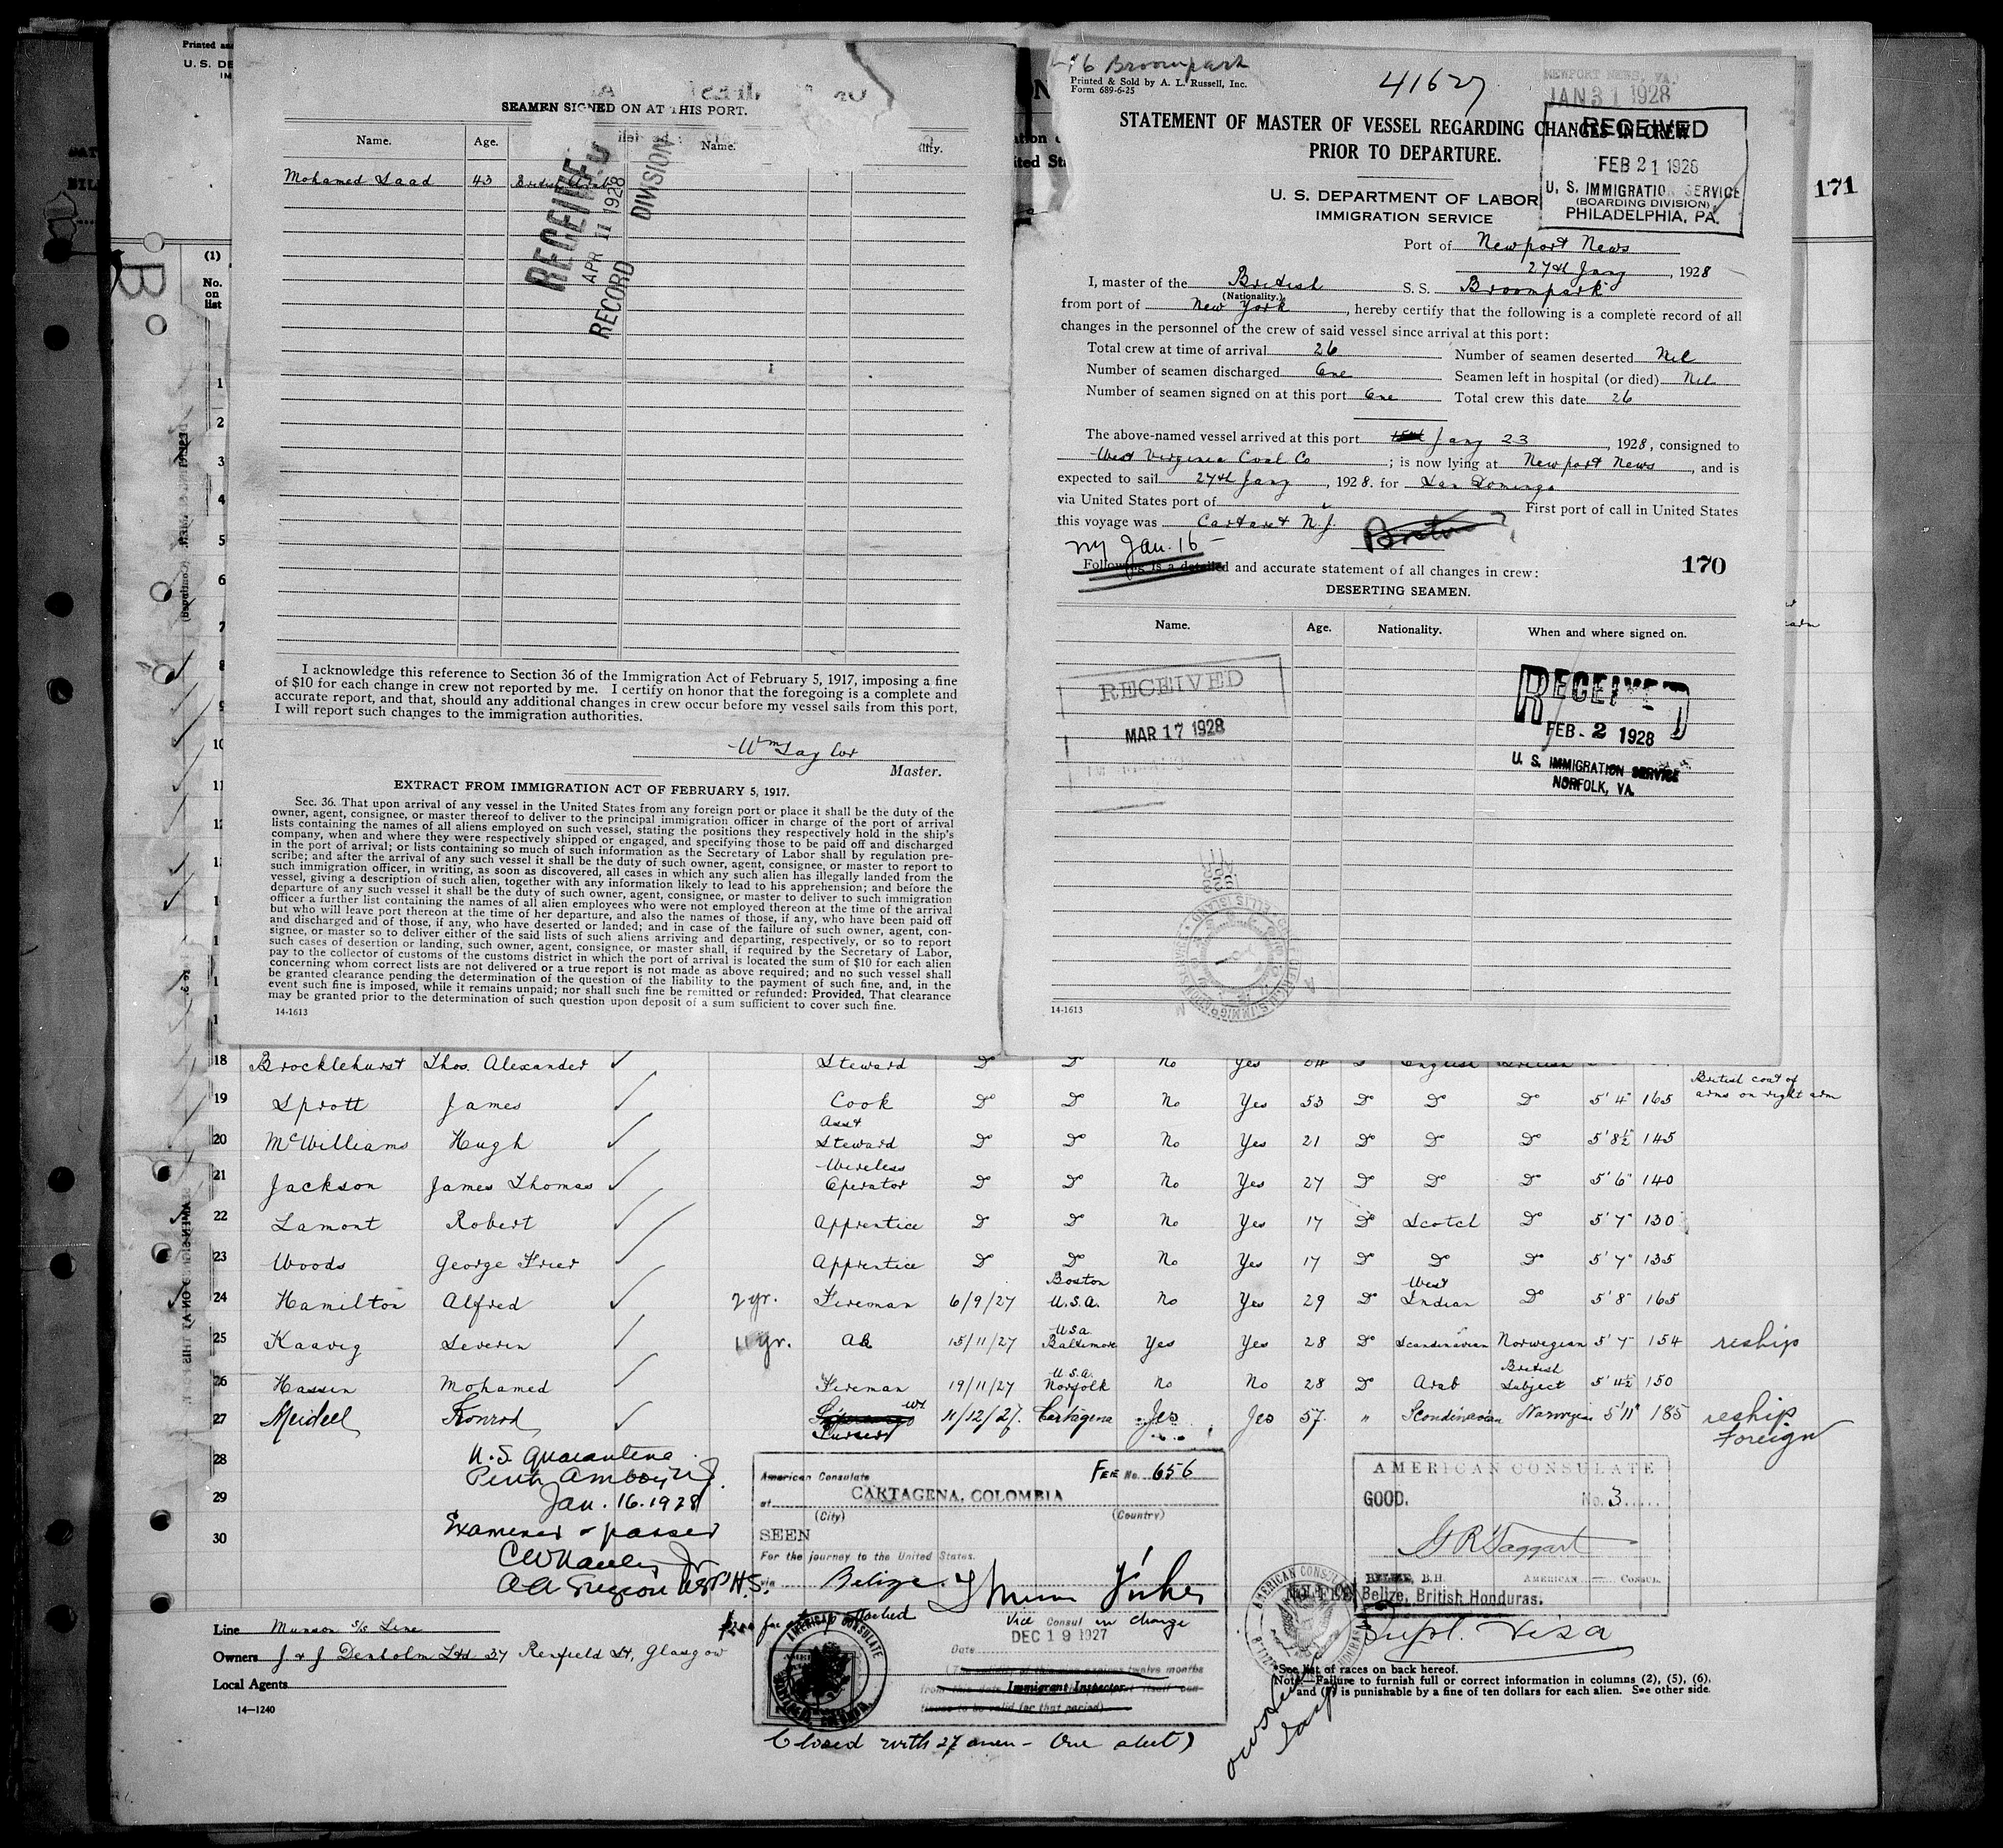 Printed and
U. S. DE
SEAMEN SIGNED ON AT THIS PORT.
Name. Age. Name.
Mohamed Saad 43 British Arab
RECEIVED
APR 11 1928
RECORD DIVISION
I acknowledge this reference to Section 36 of the Immigration Act of February 5, 1917, imposing a fine
of $10 for each change in crew not reported by me. I certify on honor that the foregoing is a complete and
accurate report, and that, should any additional changes in crew occur before my vessel sails from this port,
I will report such changes to the immigration authorities.
Wm Taylor
Master.
EXTRACT FROM IMMIGRATION ACT OF FEBRUARY 5, 1917.
Sec. 36. That upon arrival of any vessel in the United States from any foreign port or place it shall be the duty of the
owner, agent, consignee, or master thereof to deliver to the principal immigration officer in charge of the port of arrival
lists containing the names of all aliens employed on such vessel, stating the positions they respectively hold in the ship's
company, when and where they were respectively shipped or engaged, and specifying those to be paid off and discharged
in the port of arrival; or lists containing so much of such information as the Secretary of Labor shall by regulation pre-
scribe; and after the arrival of any such vessel it shall be the duty of such owner, agent, consignee, or master to report to
such immigration officer, in writing, as soon as discovered, all cases in which any such alien has illegally landed from the
vessel, giving a description of such alien, together with any information likely to lead to his apprehension; and before the
departure of any such vessel it shall be the duty of such owner, agent, consignee, or master to deliver to such immigration
officer a further list containing the names of all alien employees who were not employed thereon at the time of the arrival
but who will leave port thereon at the time of her departure, and also the names of those, if any, who have been paid off
and discharged and of those, if any, who have deserted or landed; and in case of the failure of such owner, agent, con-
signee, or master so to deliver either of the said lists of such aliens arriving and departing, respectively, or so to report
such cases of desertion or landing, such owner, agent, consignee, or master shall, if required by the Secretary of Labor,
pay to the collector of customs of the customs district in which the port of arrival is located the sum of $10 for each alien
concerning whom correct lists are not delivered or a true report is not made as above required; and no such vessel shall
be granted clearance pending the determination of the question of the liability to the payment of such fine, and, in the
event such fine is imposed, while it remains unpaid; nor shall such fine be remitted or refunded: Provided, That clearance
may be granted prior to the determination of such question upon deposit of a sum sufficient to cover such fine.
14-1613
Broompark
Printed & Sold by A. L. Russell, Inc.
Form 689-6-25
41627
NEWPORT NEWS, VA.
JAN 31 1928
STATEMENT OF MASTER OF VESSEL REGARDING CHANGES IN CREW
PRIOR TO DEPARTURE.
RECEIVED
FEB 21 1928
U. S. IMMIGRATION SERVICE
(BOARDING DIVISION)
PHILADELPHIA, PA.
171
U. S. DEPARTMENT OF LABOR
IMMIGRATION SERVICE
Port of Newport News
27th Jany, 1928
I, master of the British S. S. Broompark
(Nationality.)
from port of New York, hereby certify that the following is a complete record of all
changes in the personnel of the crew of said vessel since arrival at this port:
Total crew at time of arrival 26 Number of seamen deserted Nil
Number of seamen discharged One Seamen left in hospital (or died) Nil
Number of seamen signed on at this port One Total crew this date 26
The above-named vessel arrived at this port Jany 23, 1928, consigned to
West Virginia Coal Co; is now lying at Newport News, and is
expected to sail 27th Jany, 1928. for San Domingo
via United States port of First port of call in United States
this voyage was Carteret N.J. Boston
NY Jan. 16
Following is a detailed and accurate statement of all changes in crew:
170
DESERTING SEAMEN.
Name. Age. Nationality. When and where signed on.
RECEIVED
MAR 17 1928
RECEIVED
FEB - 2 1928
U. S. IMMIGRATION SERVICE
NORFOLK, VA.
14-1613
(1)
No.
on
list
1
2
3
4
5
6
7
8
9
10
11
18 Brocklehurst Thos. Alexander Steward Do Do No Yes 54 Do English British
19 Sprott James Cook Do Do No Yes 53 Do Do Do 5' 4" 165 British coat of arms on right arm
20 McWilliams Hugh Asst Steward Do Do No Yes 21 Do Do Do 5' 8½" 145
21 Jackson James Thomas Wireless Operator Do Do No Yes 27 Do Do Do 5' 6" 140
22 Lamont Robert Apprentice Do Do No Yes 17 Do Scotch Do 5' 7" 130
23 Woods George Frier Apprentice Do Do No Yes 17 Do Do Do 5' 7" 135
24 Hamilton Alfred 2 yr. Fireman 6/9/27 Boston U.S.A. No Yes 29 Do West Indian Do 5' 8" 165
25 Kaavig Severin 11 yr. AB 15/11/27 USA Baltimore Yes Yes 28 Do Scandinavian Norwegian 5' 7" 154 reship
26 Hassen Mohamed Fireman 19/11/27 U.S.A. Norfolk No No 28 Do Arab British Subject 5' 4½" 150
27 Meidell Konrod 11/12/27. Cartagena Yes Yes 57 " Scandinavian Norwegian 5'11" 185 reship Foreign
28
29
30
U.S. Quarantine
Perth Amboy N.J.
Jan. 16. 1928
Examined & passed
AA Surgeon USPHS.
American Consulate FEE No. 656
at CARTAGENA, COLOMBIA
(City) (Country)
SEEN
For the journey to the United States.
via Belize
Vice Consul in charge
Date DEC 19 1927
Immigrant Inspector.
AMERICAN CONSULATE
GOOD. No. 3
G R Taggart
BELIZE, B.H. AMERICAN CONSUL
Belize, British Honduras.
Supl. Visa
Line Munson S/S Line
Owners J & J Denholm Ltd 37 Renfield St, Glasgow
Local Agents
14-1240
*See list of races on back hereof.
Note.—Failure to furnish full or correct information in columns (2), (5), (6),
and (7) is punishable by a fine of ten dollars for each alien. See other side.
Closed with 27 men - One alien)